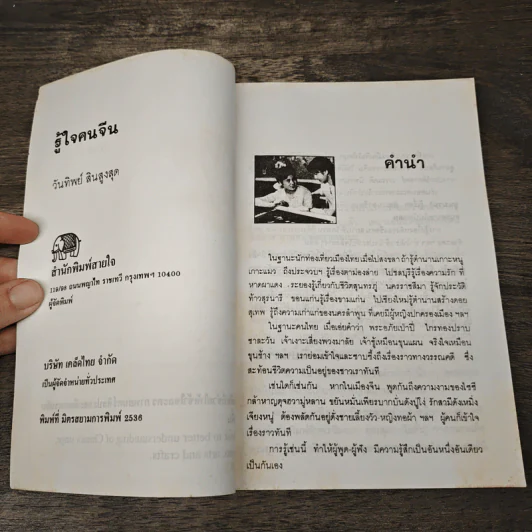 รู้ใจคนจีน
วันทิพย์ สินสูงสุด
สำนักพิมพ์สายใจ
ถนนพญาไท ราชเทวี กรุงเทพฯ 10400
ผู้จัดพิมพ์
บริษัท เคล็ดไทย จำกัด
เป็นผู้จัดจำหน่ายทั่วประเทศ
พิมพ์ที่ มิตรสยามการพิมพ์ 2536
คำนำ
ในฐานะนักท่องเที่ยวเมืองไทย เมื่อไปสงขลา ถ้ารู้ตำนานเกาะหนู
เกาะแมว ถึงประจวบฯ รู้เรื่องตาม่องล่าย ไปชลบุรีรู้เรื่องความรัก ที่
หาดผาแดง ระยองรู้เกี่ยวกับชีวิตสุนทรภู่ นครราชสีมา รู้จักประวัติ
ท้าวสุรนารี ขอนแก่นรู้เรื่องขามแก่น ไปเชียงใหม่รู้ตำนานสร้างดอย
สุเทพ รู้ถึงความเก่าแก่ของนครลำพูน ที่เคยมีผู้หญิงปกครองเมือง ฯลฯ
ในฐานะคนไทย เมื่อเอ่ยคำว่า พระอภัยเป่าปี่ ไกรทองปราบ
ชาละวัน เจ้าเงาะเสี่ยงพวงมาลัย เจ้าชู้เหมือนขุนแผน จริงใจเหมือน
ขุนช้าง ฯลฯ เราย่อมเข้าใจและซาบซึ้งถึงเรื่องราวทางวรรณคดี ซึ่ง
สะท้อนชีวิตความเป็นอยู่ของชาวเราทันที
เช่นใดก็เช่นกัน หากในเมืองจีน พูดกันถึงความงามของไซซี
กล้าหาญดุจฮวามู่หลาน ขยันหมั่นเพียรบากบั่นดังปู่โง่ รักสามีดังเหมิ่ง
เจียงหนู่ ต้องพลัดกันอยู่ดั่งชายเลี้ยงวัว-หญิงทอผ้า ฯลฯ ผู้คนก็เข้าใจ
เรื่องราวทันที
การรู้เช่นนี้ ทำให้ผู้พูด-ผู้ฟัง มีความรู้สึกเป็นอันหนึ่งอันเดียว
เป็นกันเอง